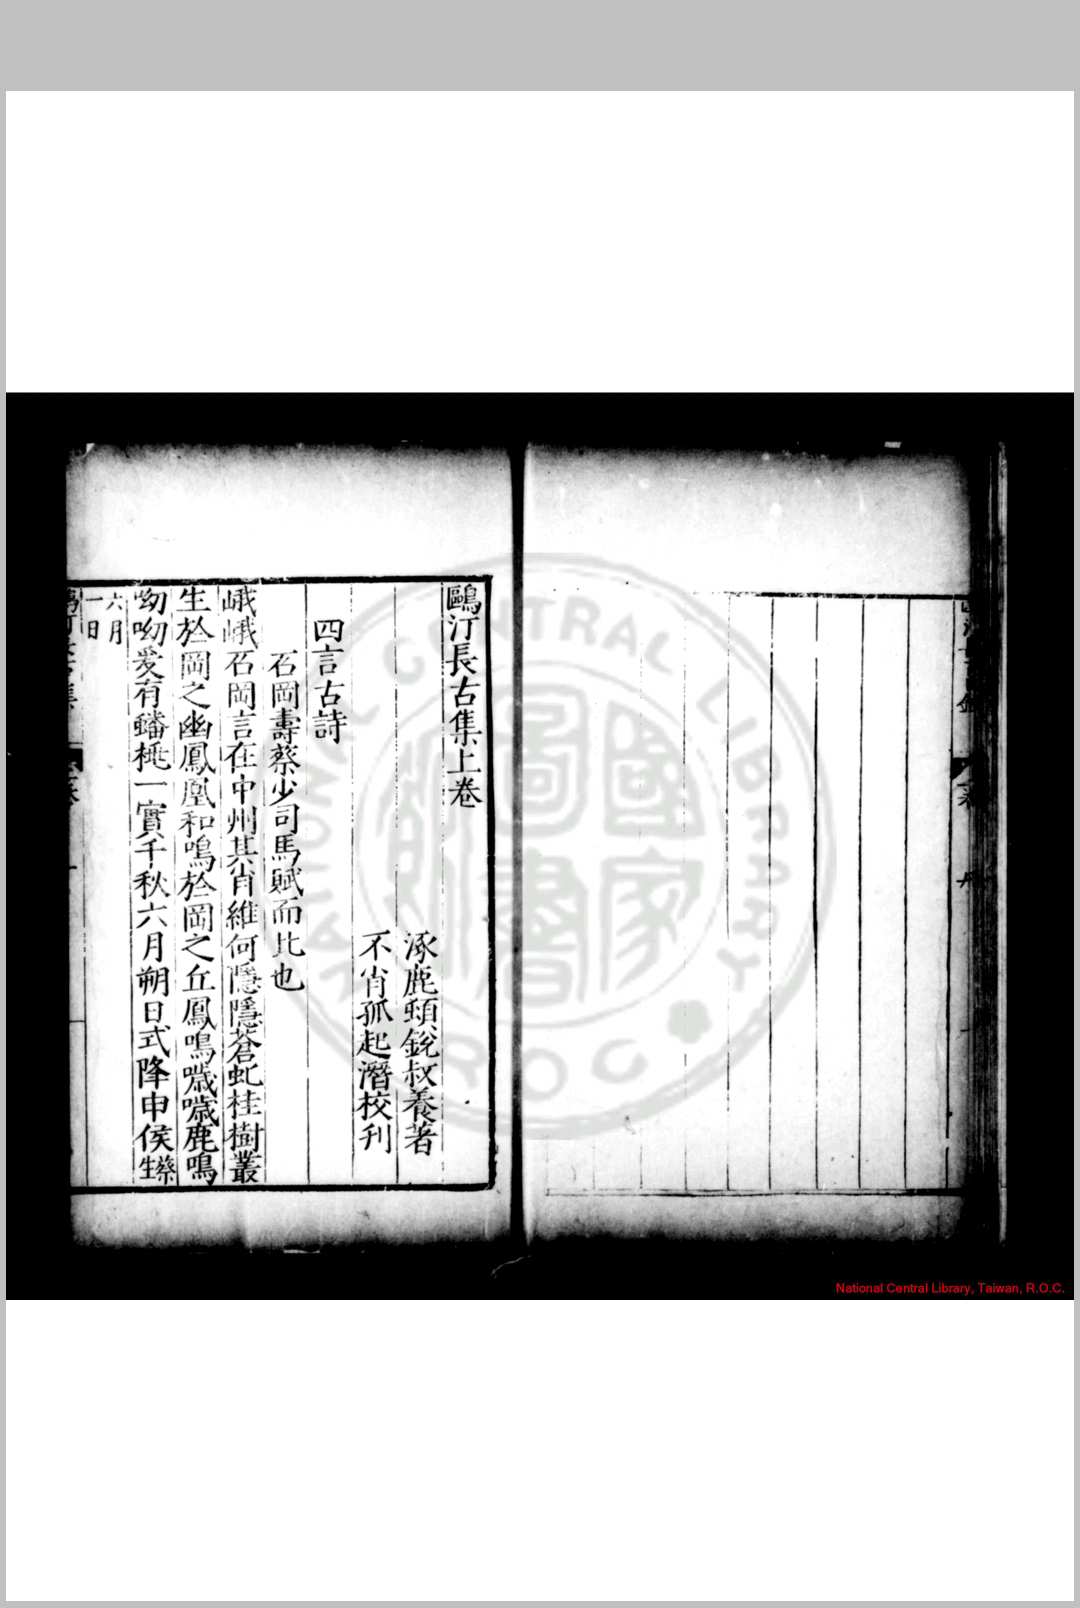 鷗汀長古集上卷
涿鹿頓銳叔養著
不肖孤起潛校刊
四言古詩
石岡壽蔡少司馬賦而比也
峨峨石岡言在中州其肖維何隱隱蒼虬桂樹叢
生於岡之幽鳳凰和鳴於岡之丘鳳鳴噦噦鹿鳴
呦呦爰有蟠桃一實千秋六月朔日式降申侯蔡生
六月
一日
NATIONAL CENTRAL LIBRARY
R O C
National Central Library, Taiwan, R.O.C.